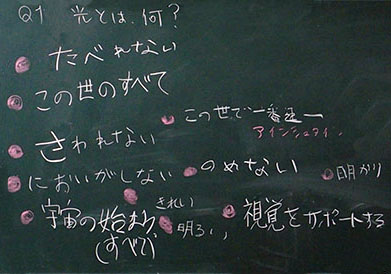 Q1 光とは、何?
たべれない
この世のすべて
この世で一番速
アインシュタイン
さわれない
においがしない
のめない
明かり
宇宙の始まり
(すべて)
きれい
明るい
視覚をサポートする